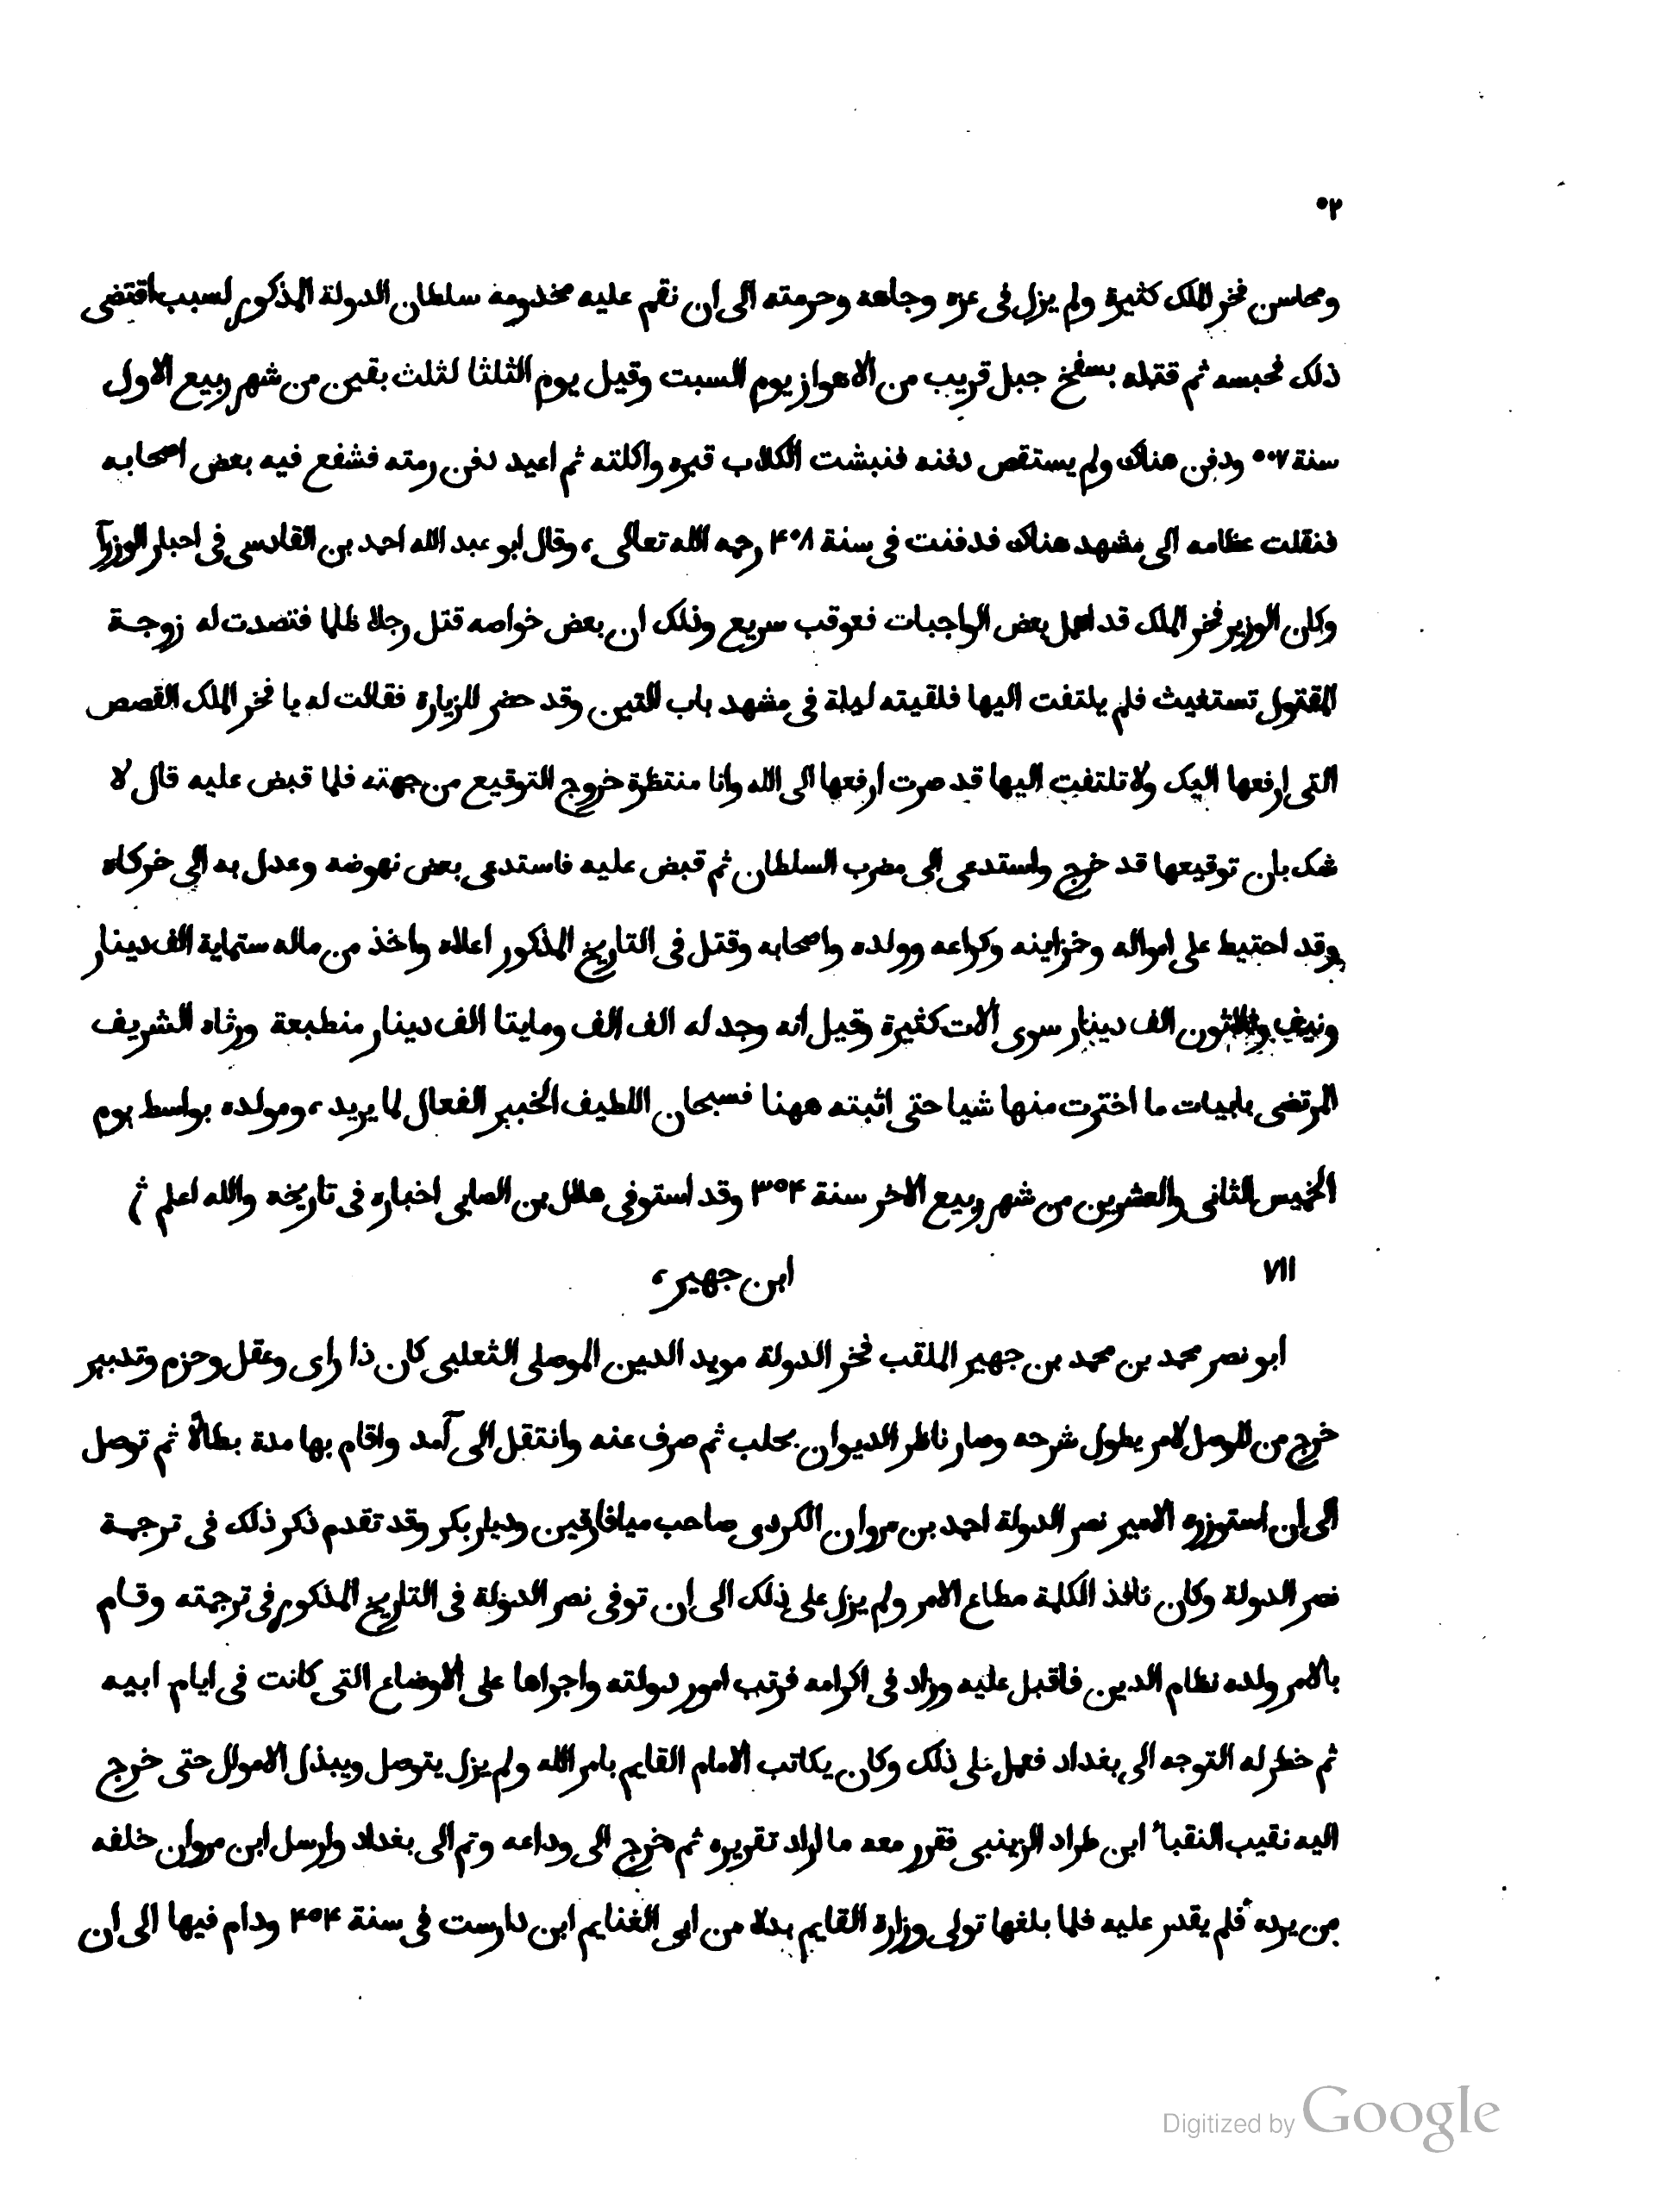 ٥٢
ومحاسن فخر الملك كثيرة ولم يزل فى عزه وجاهه وحرمته الى ان نقم عليه مخدومه سلطان الدولة المذكور لسبب اقتضى
ذلك فحبسه ثم قتله بسفح جبل قريب من الاهواز يوم السبت وقيل يوم الثلثا لثلث بقين من شهر ربيع الاول
سنة ٥٠٧ ودفن هناك ولم يستقص دفنه فنبشت الكلاب قبره واكلته ثم اعيد دفن رمته فشفع فيه بعض اصحابه
فنقلت عظامه الى مشهد هناك فدفنت فى سنة ۴٠٨ رحمه الله تعالى، وقال ابو عبد الله احمد بن القادسى فى اخبار الوزرآ
وكان الوزير فخر الملك قد اهمل بعض الواجبات فعوقب سريع وذلك ان بعض خواصه قتل رجلا ظلما فتصدت له زوجة
المقتول تستغيث فلم يلتفت اليها فلقيته ليلة فى مشهد باب التين وقد حضر للزيارة فقالت له يا فخر الملك القصص
التى ارفعها اليك ولا تلتفت اليها قد صرت ارفعها الى الله وانا منتظرة خروج التوقيع من جهته فلما قبض عليه قال لا
شك بان توقيعها قد خرج واستدعى الى مضرب السلطان ثم قبض عليه فاستدعى بعض نهوضه وعدل به الى خركاه
وقد احتيط على امواله وخزاينه وكراعه وولده واصحابه وقتل فى التاريخ المذكور اعلاه واخذ من ماله ستماية الف دينار
ونيف وثلاثون الف دينار سوى الات كثيرة وقيل انه وجد له الف الف ومايتا الف دينار منطبعة ورثاه الشريف
المرتضى بابيات ما اخترت منها شيا حتى اثبته ههنا فسبحان اللطيف الخبير الفعال لما يريد، ومولده بواسط يوم
الخميس الثانى والعشرين من شهر ربيع الاخر سنة ٣٥۴ وقد استوفى هلال بن الصابى اخباره فى تاريخه والله اعلم
٧١١ ابن جهير،
ابو نصر محمد بن محمد بن جهير الملقب فخر الدولة مويد الدين الموصلى الثعلبى كان ذا راى وعقل وحزم وتدبير
خرج من الموصل لامر يطول شرحه وصار ناظر الديوان بحلب ثم صرف عنه وانتقل الى آمد واقام بها مدة بطالًا ثم توصل
الى ان استوزره الامير نصر الدولة احمد بن مروان الكردى صاحب ميافارقين وديار بكر وقد تقدم ذكر ذلك فى ترجمة
نصر الدولة وكان نافذ الكلمة مطاع الامر ولم يزل على ذلك الى ان توفى نصر الدولة فى التاريخ المذكور فى ترجمته وقام
بالامر ولده نظام الدين فاقبل عليه وزاد فى اكرامه فرتب امور دولته واجراها على الاوضاع التى كانت فى ايام ابيه
ثم خطر له التوجه الى بغداد فعمل على ذلك وكان يكاتب الامام القايم بامر الله ولم يزل يتوصل ويبذل الاموال حتى خرج
اليه نقيب النقبأ ابن طراد الزينبى فقرر معه ما اراد تقريره ثم خرج الى وداعه وتم الى بغداد وارسل ابن مروان خلفه
من يرده فلم يقدر عليه فلما بلغها تولى وزارة القايم بدلا من ابى الغنايم ابن دارست فى سنة ۴٥۴ ودام فيها الى ان
Digitized by Google